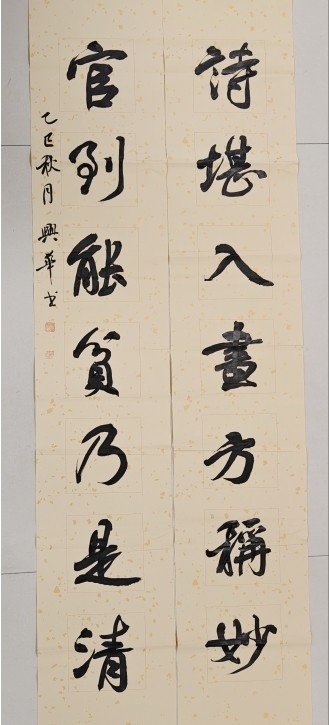 詩堪入畫方稱妙
官到能貧乃是清
乙巳秋月興華书